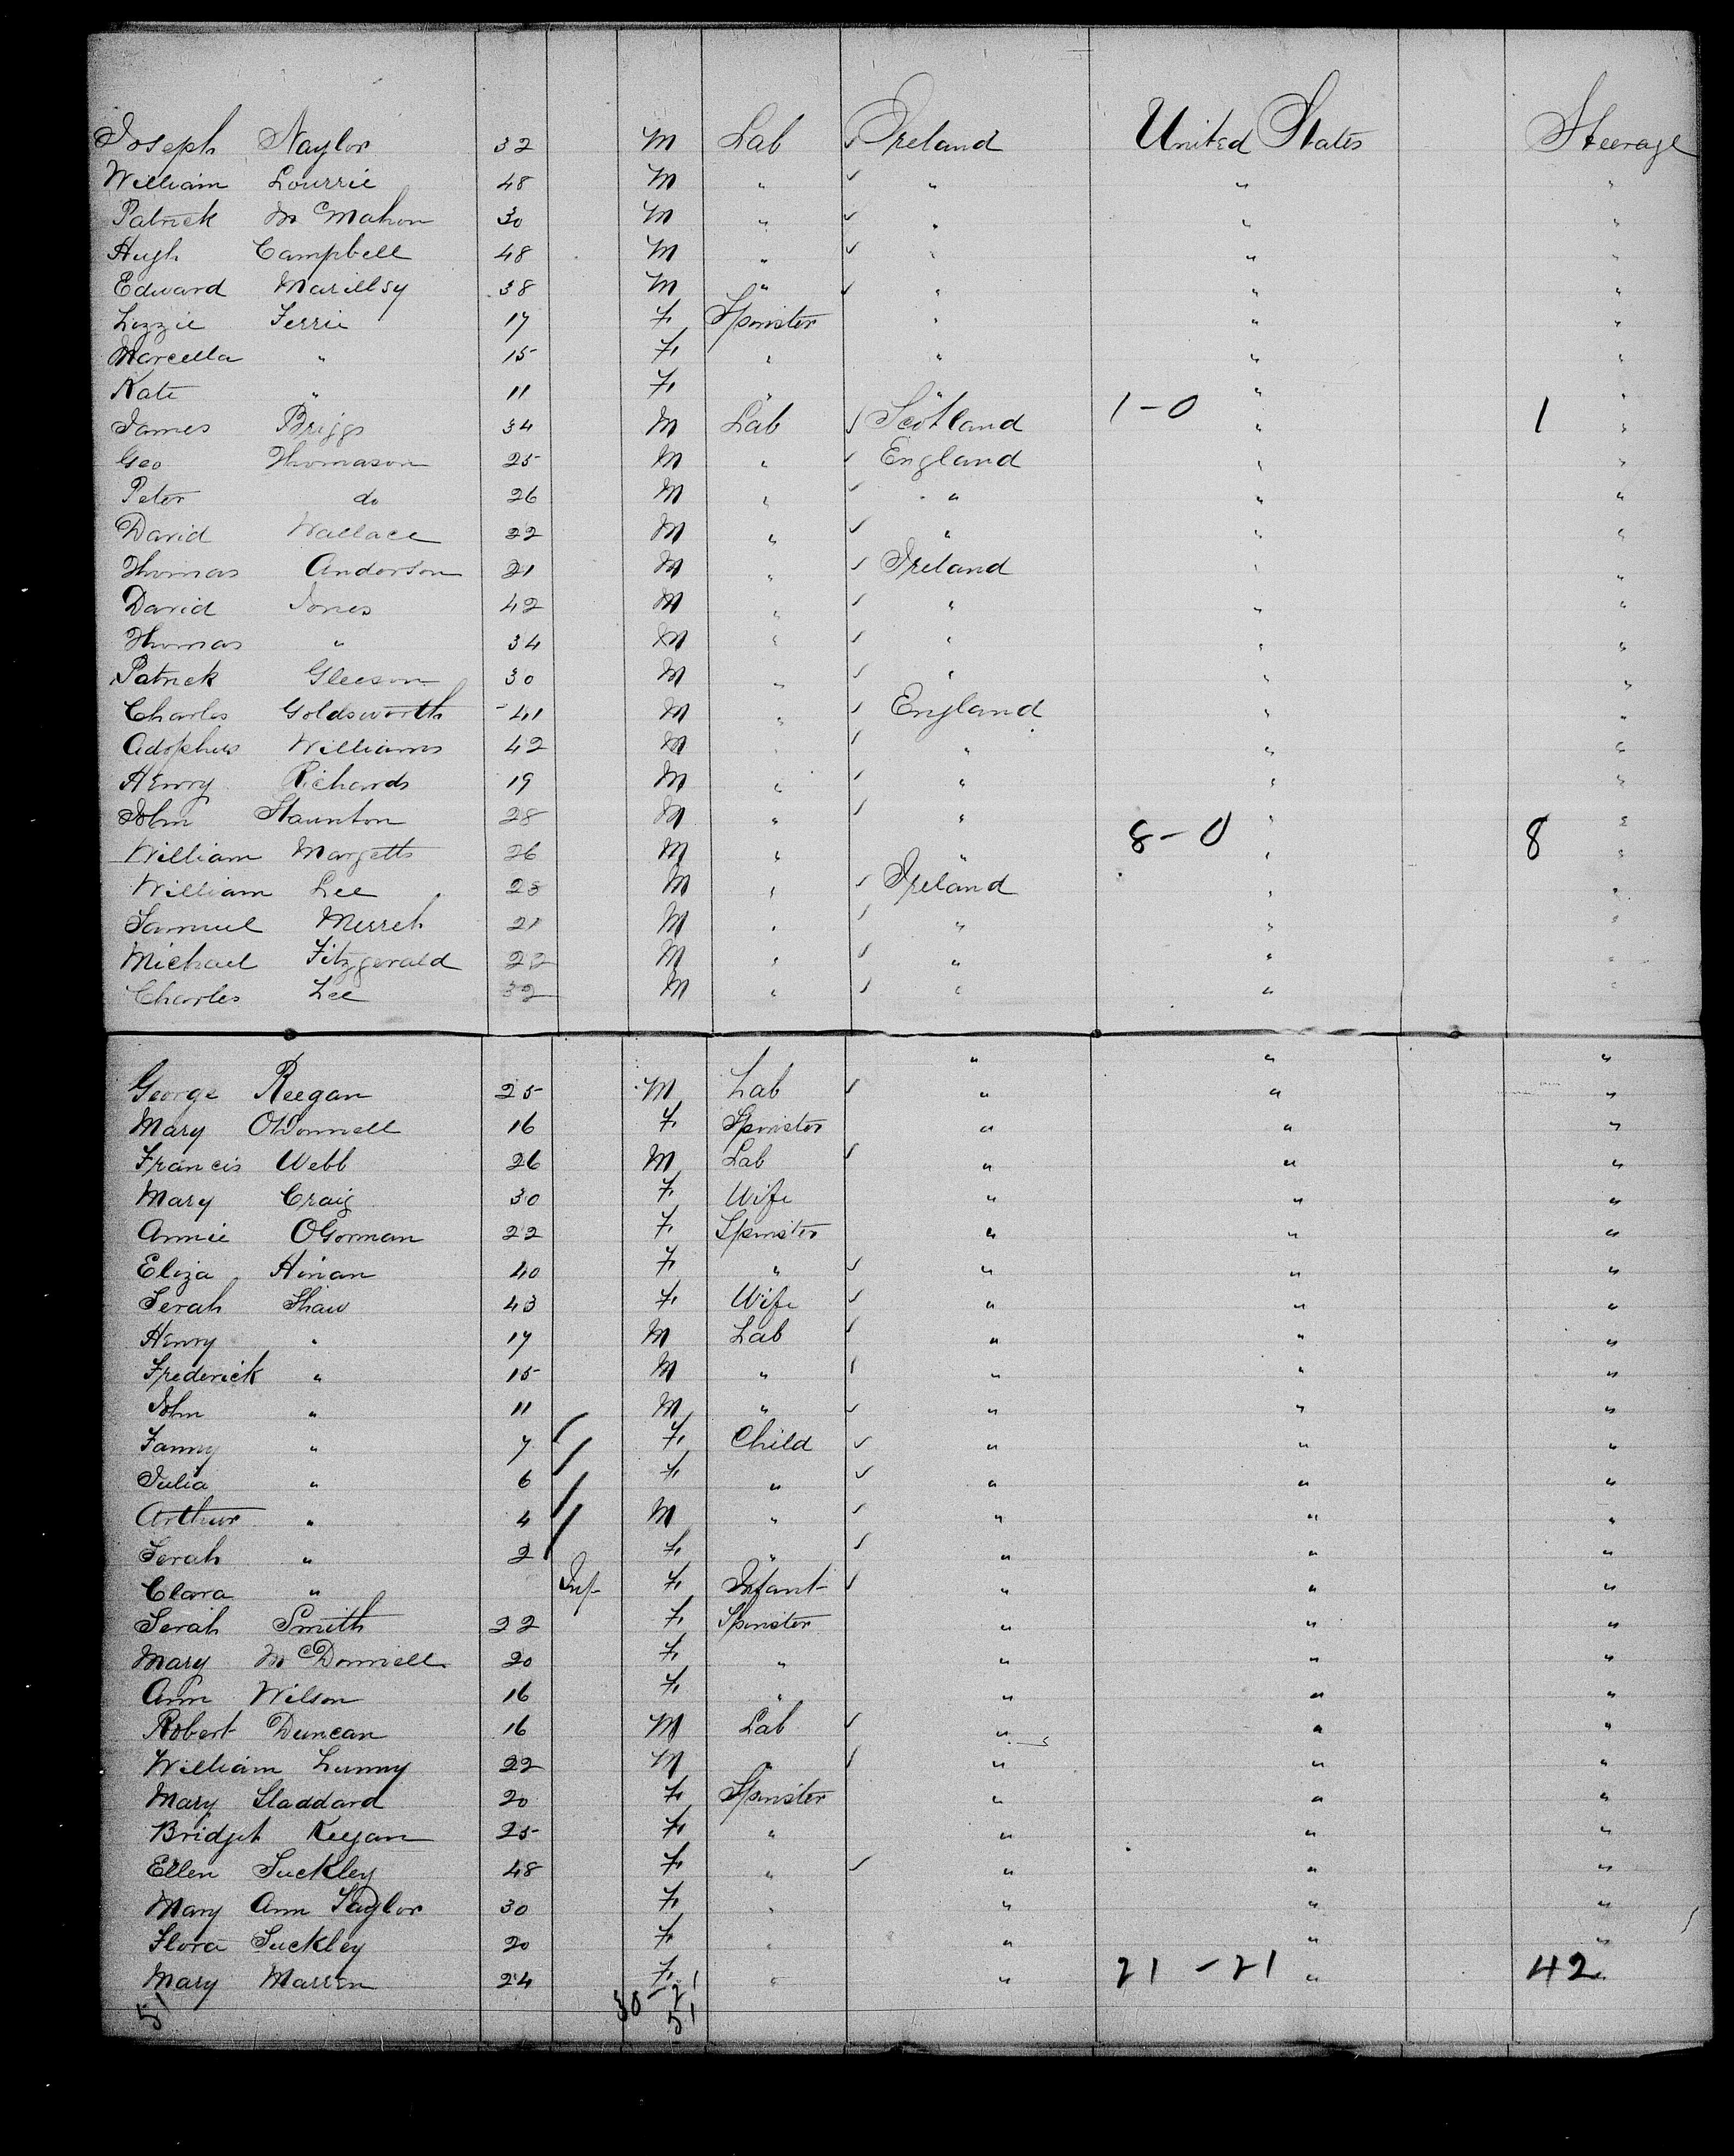 Joseph Naylor 32 M Lab ✓ Ireland United States Steerage
William Lourrie 48 M " ✓ " " "
Patrick McMahon 30 M " ✓ " " "
Hugh Campbell 48 M " ✓ " " "
Edward 38 M " ✓ " " "
Lizzie Ferrie 17 F. Spinster " " "
Marcella " 15 F. " " " "
Kate " 11 F. " " " "
James Briggs 34 M Lab ✓ Scotland 1-0 " 1 "
Geo Thomason 25 M " ✓ England " "
Peter do 26 M " ✓ " " "
David Wallace 22 M " ✓ " " "
Thomas Anderson 21 M " ✓ Ireland " "
David Jones 42 M " ✓ " " "
Thomas " 34 M " ✓ " " "
Patrick Gleeson 30 M " ✓ " " "
Charles Goldsworth 41 M " ✓ England " "
Adophus Williams 42 M " ✓ " " "
Henry Richards 19 M " ✓ " " "
John Staunton 28 M " ✓ " " "
William Margetts 26 M " " 8-0 " 8 "
William Lee 28 M " ✓ Ireland " "
Samuel 21 M " ✓ " " "
Michael Fitzgerald 22 M " ✓ " " "
Charles Lee 32 M " ✓ " " "
" " "
George Reegan 25 M Lab ✓ " " "
Mary ODonnell 16 F. Spinster " " "
Francis Webb 26 M Lab ✓ " " "
Mary Craig 30 F. Wife " " "
Annie OGorman 22 F. Spinster " " "
Eliza Hinan 40 F. " ✓ " " "
Serah Shaw 43 F. Wife ✓ " " "
Henry " 17 M Lab ✓ " " "
Frederick " 15 M " ✓ " " "
John " 11 M " ✓ " " "
Fanny " 7 / F. Child ✓ " " "
Julia " 6 / F. " ✓ " " "
Arthur " 4 / M " ✓ " " "
Serah " 2 / F. " ✓ " " "
Clara " Inf F. Infant ✓ " " "
Serah Smith 22 F. Spinster " " "
Mary McDonnell 20 F. " " " "
Ann Wilson 16 F. " " " "
Robert Duncan 16 M Lab ✓ " " "
William Lunny 22 M " ✓ " " "
Mary Sladdard 20 F. Spinster " " "
Bridget Keegan 25 F. " " " "
Ellen Suckley 48 F. " ✓ " " "
Mary Ann Taylor 30 F. " " " "
Flora Suckley 20 F. " " " "
Mary Marren 24 F. " " 21-21 " 42 "
51 30-21
51